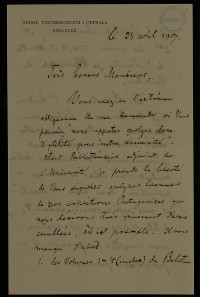 KUNGL. UNIVERSITETETS I UPSALA
BIBLIOTEK
le 23 août 190
Très honoré Monsieur,
Vous avez eu l'extrême
obligeance de me demander si Vous
pourriez nous apporter quelque chose
d'utilité pour notre Université.
Étant Bibliothécaire adjoint de
l'Université, je prends la liberté
de Vous signaler quelques lacunes
de nos collections Portugaises que
nous désirons très vivement d'avoir
comblées, s'il est possible. Il nous
manque d'abord
1. les Volumes 1-4 (inclus) du Boletim